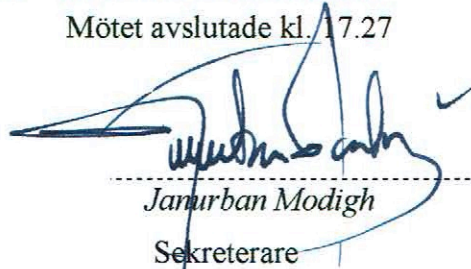 Mötet avslutade kl. 17.27
Janurban Modigh
Sekreterare